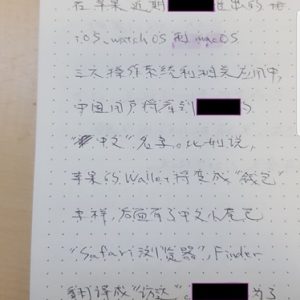 在苹果近期 推出的的
iOS, watchOS 和 macOS
三大操作系统和相关应用中,
中国用户将看到 的
"中文"名字。比如说,
苹果的Wallet将变成"钱包"
来样,后面有了中文小尾巴
"Safari浏览器", Finder
翻译成"访达"。 为了